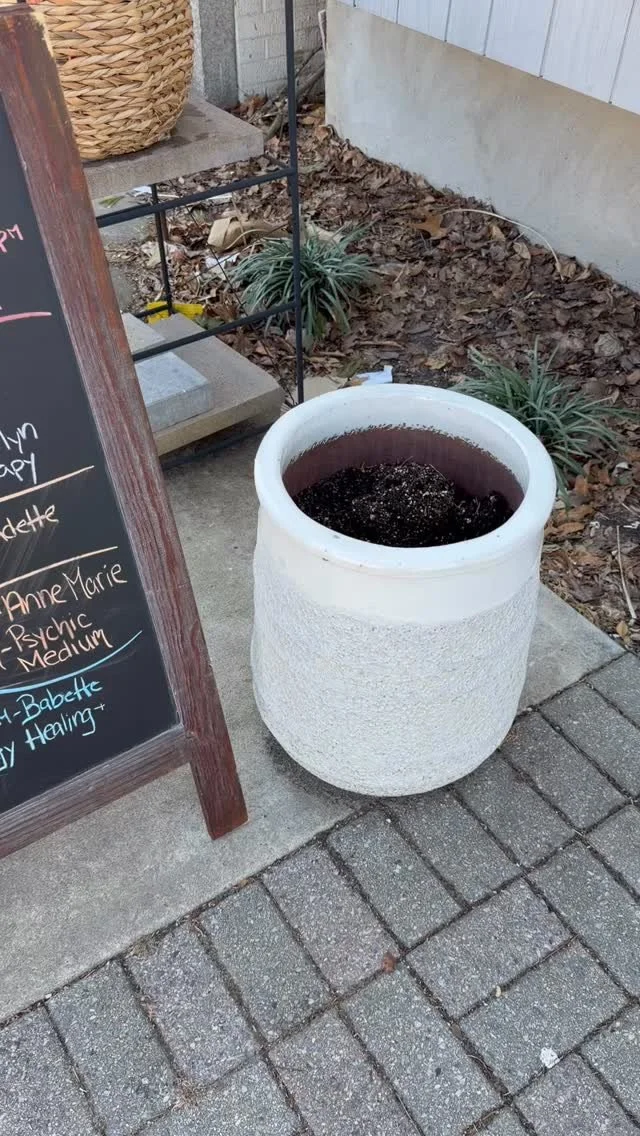 PM
lyn
apy
dette
-AnneMarie
-Psychic
Medium
M-Babette
gy Healing+